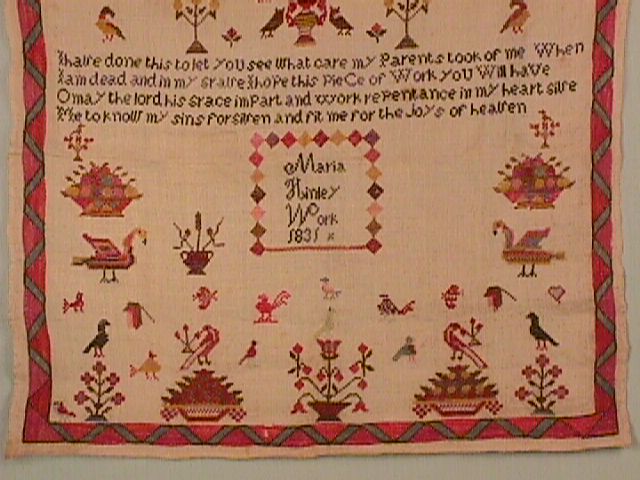 I have done this to let you see what care my Parents took of me When
I am dead and in my grave I hope this pieCe of Work you Will have
O may the lord his grace impart and work repentance in my heart give
Me to know my sins forgiven and fit me for the Joys of heaven
Maria
Hinley
Work
1831